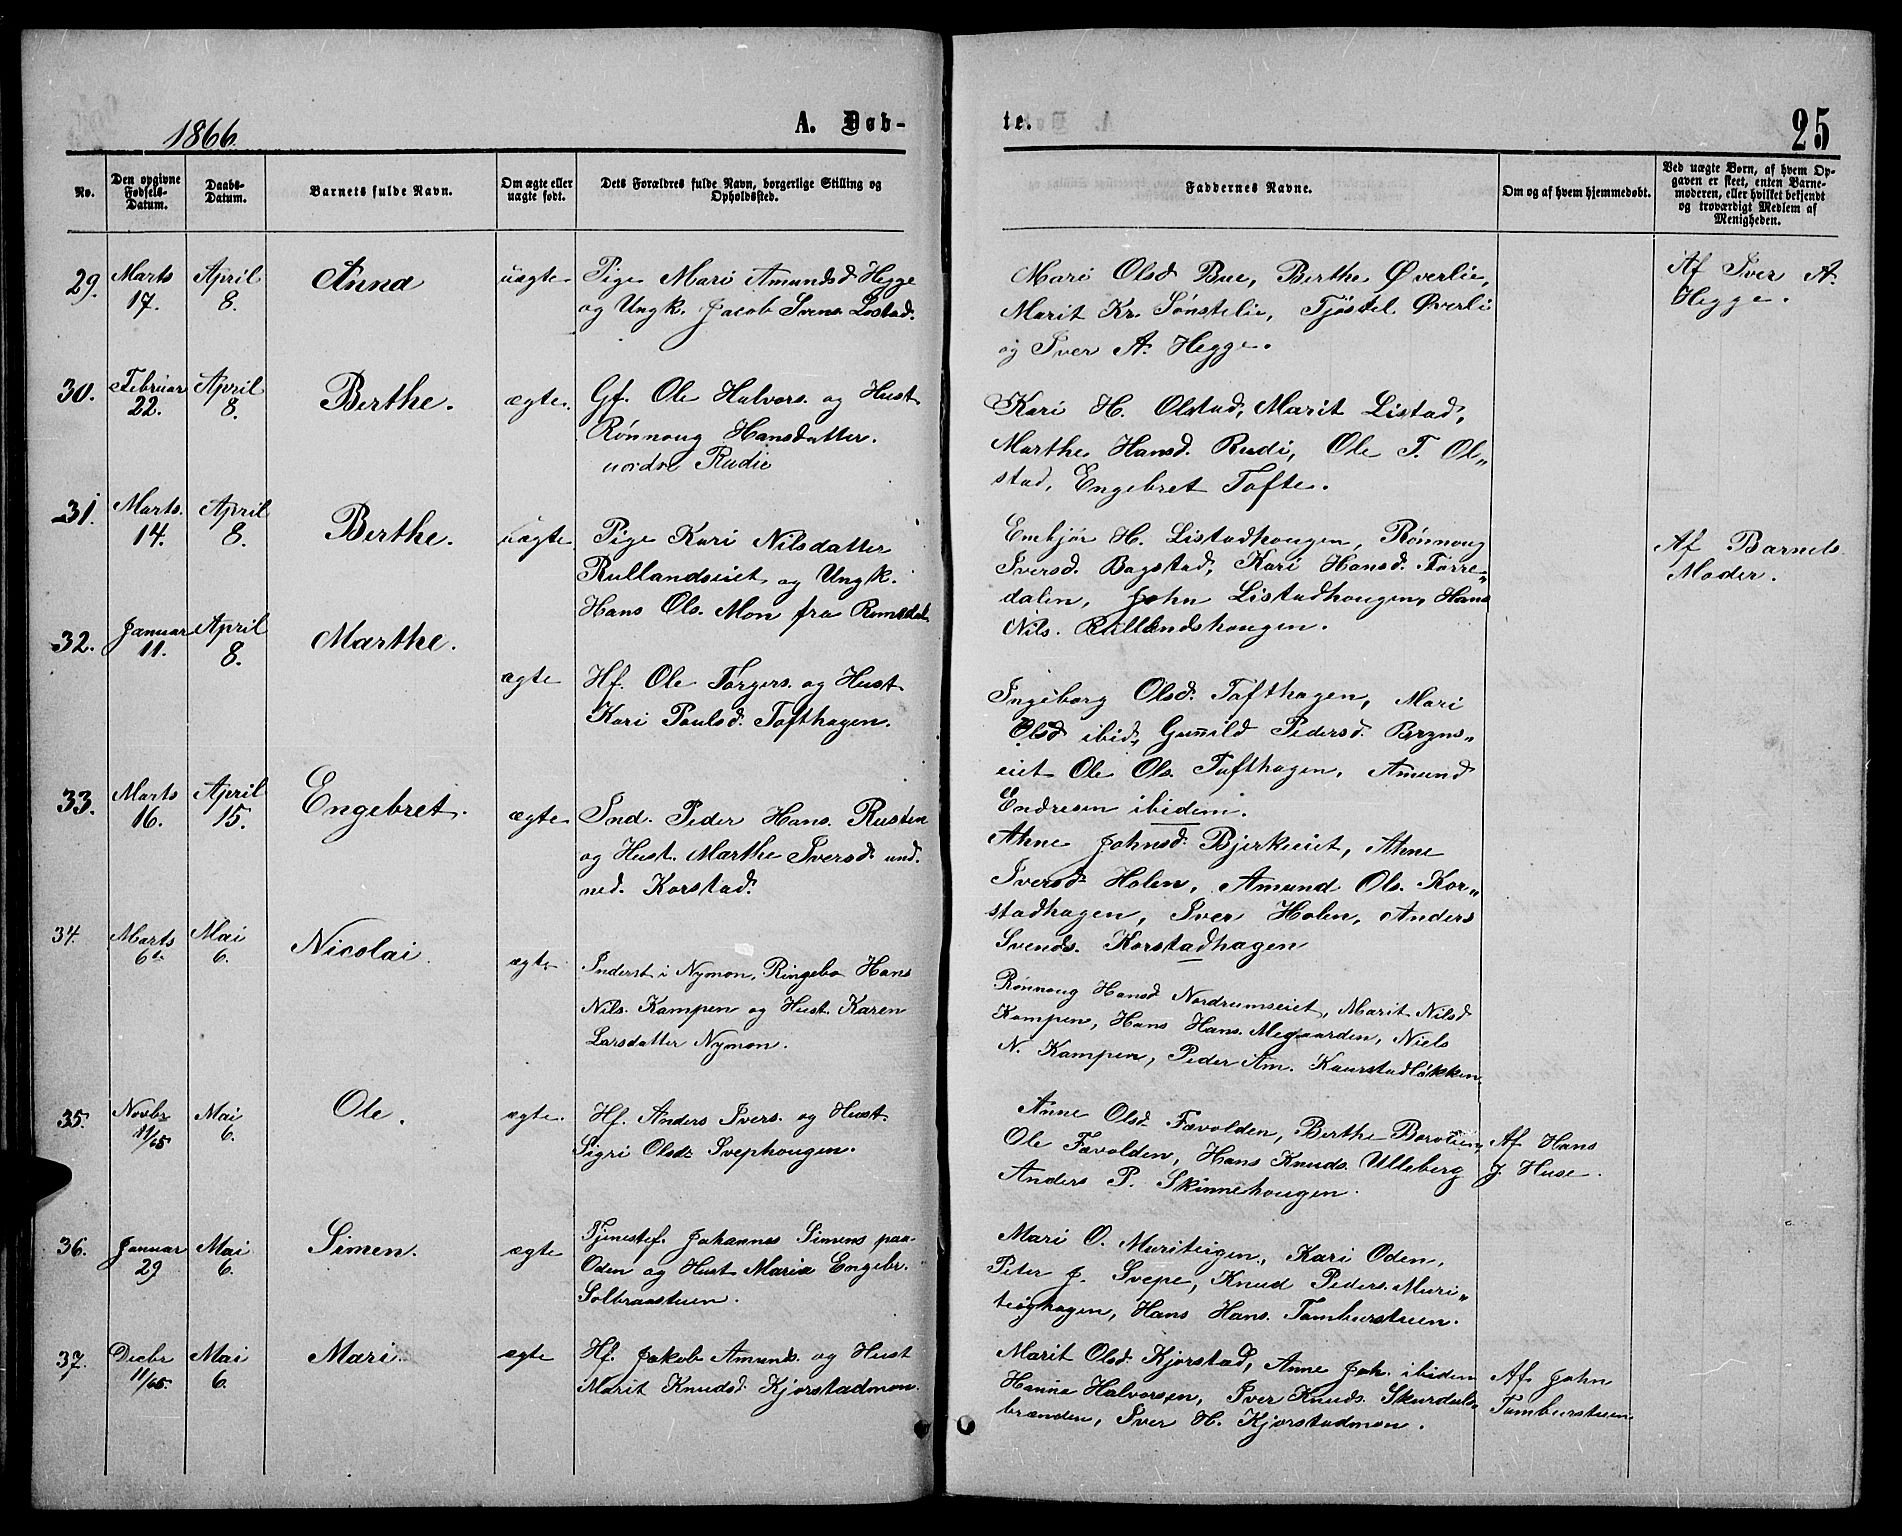 1866.
A. Døb-
te.
25
No.
Den opgivne Fødsels-Datum.
Daabs-Datum.
Barnets fulde Navn.
Om ægte eller uægte født.
Dets Forældres fulde Navn, borgerlige Stilling og Opholdssted.
Faddernes Navne.
Om og af hvem hjemmedøbt.
Ved uægte Børn, af hvem Op-
gaven er skeet, enten Barne-
moderen, eller hvilket bekjendt
og troværdigt Medlem af
Menigheden.
29. Marts 17. April 8. Anna uægte
Pige Mari Amundsd Hegge
og Ungk. Jacob Svens. Lostad.
Mari Olsd Bue, Berthe Øverlie,
Marit Kr. Sønstelie, Tjøstel Øverli
og Iver A. Hegge.
Af Iver A.
Hegge.
30. Februar 22. April 8. Berthe. ægte.
Gf. Ole Halvors. og Hust.
Rønnoug Hansdatter.
nordre Rudie
Kari H. Olstad, Marit Listad,
Marthe Hansd. Rudi, Ole T. Ol-
stad, Engebret Tofte.
31. Marts. 14. April 8. Berthe. uægte
Pige Kari Nilsdatter
Rullandseiet og Ungk.
Hans Ols. Mon fra Romsdal
Embjør H. Listadhougen, Rønnoug
Iversd. Bagstad, Kari Hansd. Forre-
dalen, John Listadhougen, Hans
Nils. Rullandshougen.
Af Barnets
Moder.
32. Januar 11. April 8. Marthe. ægte
Hf. Ole Torgers. og Hust.
Kari Paulsd. Tofthagen.
Ingeborg Olsd. Tofthagen, Mari
Olsd ibid, Gunild Pedersd. Bryns-
eiet Ole Ols. Tofthagen, Amund
Endresen ibidem.
33. Marts 16. April 15. Engebret. ægte
Ind. Peder Hans. Rusten
og Hust. Marthe Iversd. und.
ned. Korstad.
Ahne Johnsd. Bjerkeeiet, Ahne
Iversd. Holen, Amund Ols. Kor-
stadhagen, Iver Holen, Anders
Svends. Korstadhagen
34. Marts 6te Mai 6. Nicolai. ægte
Inderst i Nymon, Ringebo Hans
Nils. Kampen og Hust. Karen
Larsdatter Nymon.
Rønnoug Hansd Nordrumseiet, Marit Nilsd
Kampen, Hans Hans. Megaarden, Niels
N. Kampen, Peder Am. Kaurstadløkken.
35. Novbr 11/65 Mai 6. Ole. ægte.
Hf. Anders Ivers. og Hust.
Sigri Olsdr Svephougen.
Anne Olsd. Fævolden, Berthe
Ole Fævolden, Hans Knuds. Ulleberg
Anders P. Skinnehougen.
Af Hans
J. Huse.
36. Januar 29 Mai 6. Simen. ægte
Tjenestef. Johannes Simens paa
Oden og Hust Maria Engebr.
Solbraastuen.
Mari O. Muriteigen, Kari Oden,
Peter J. Svepe, Knud Peders. Muri-
teighagen, Hans Hans. Tomburstuen.
37. Decbr 11/65. Mai 6. Mari. ægte
Hf. Jakob Amunds. og Hust
Marit Knudsd. Kjorstadmon.
Marit Olsd. Kjorstad, Anne Joh. ibidem
Hanna Halvorsen, Iver Knuds. Skurdals-
brænden, Iver H. Kjorstadmon.
Af John
Tomburstuen.